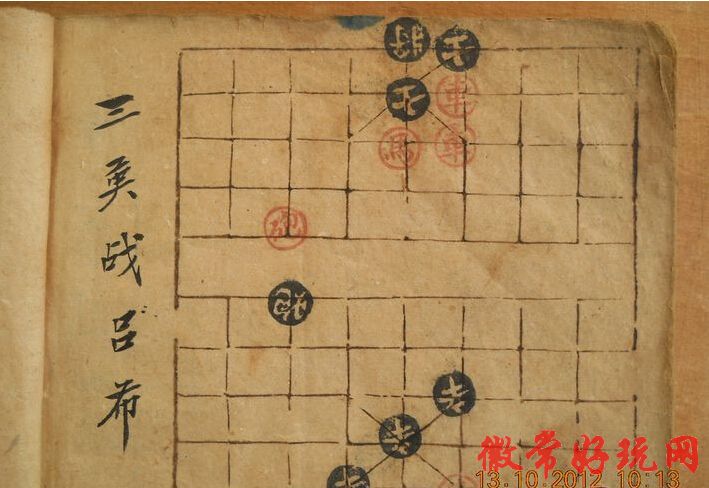 三英战吕布
将
士
士
車
馬
車
砲
炮
卒
卒
徽常好玩网
13.10.2012 10:13